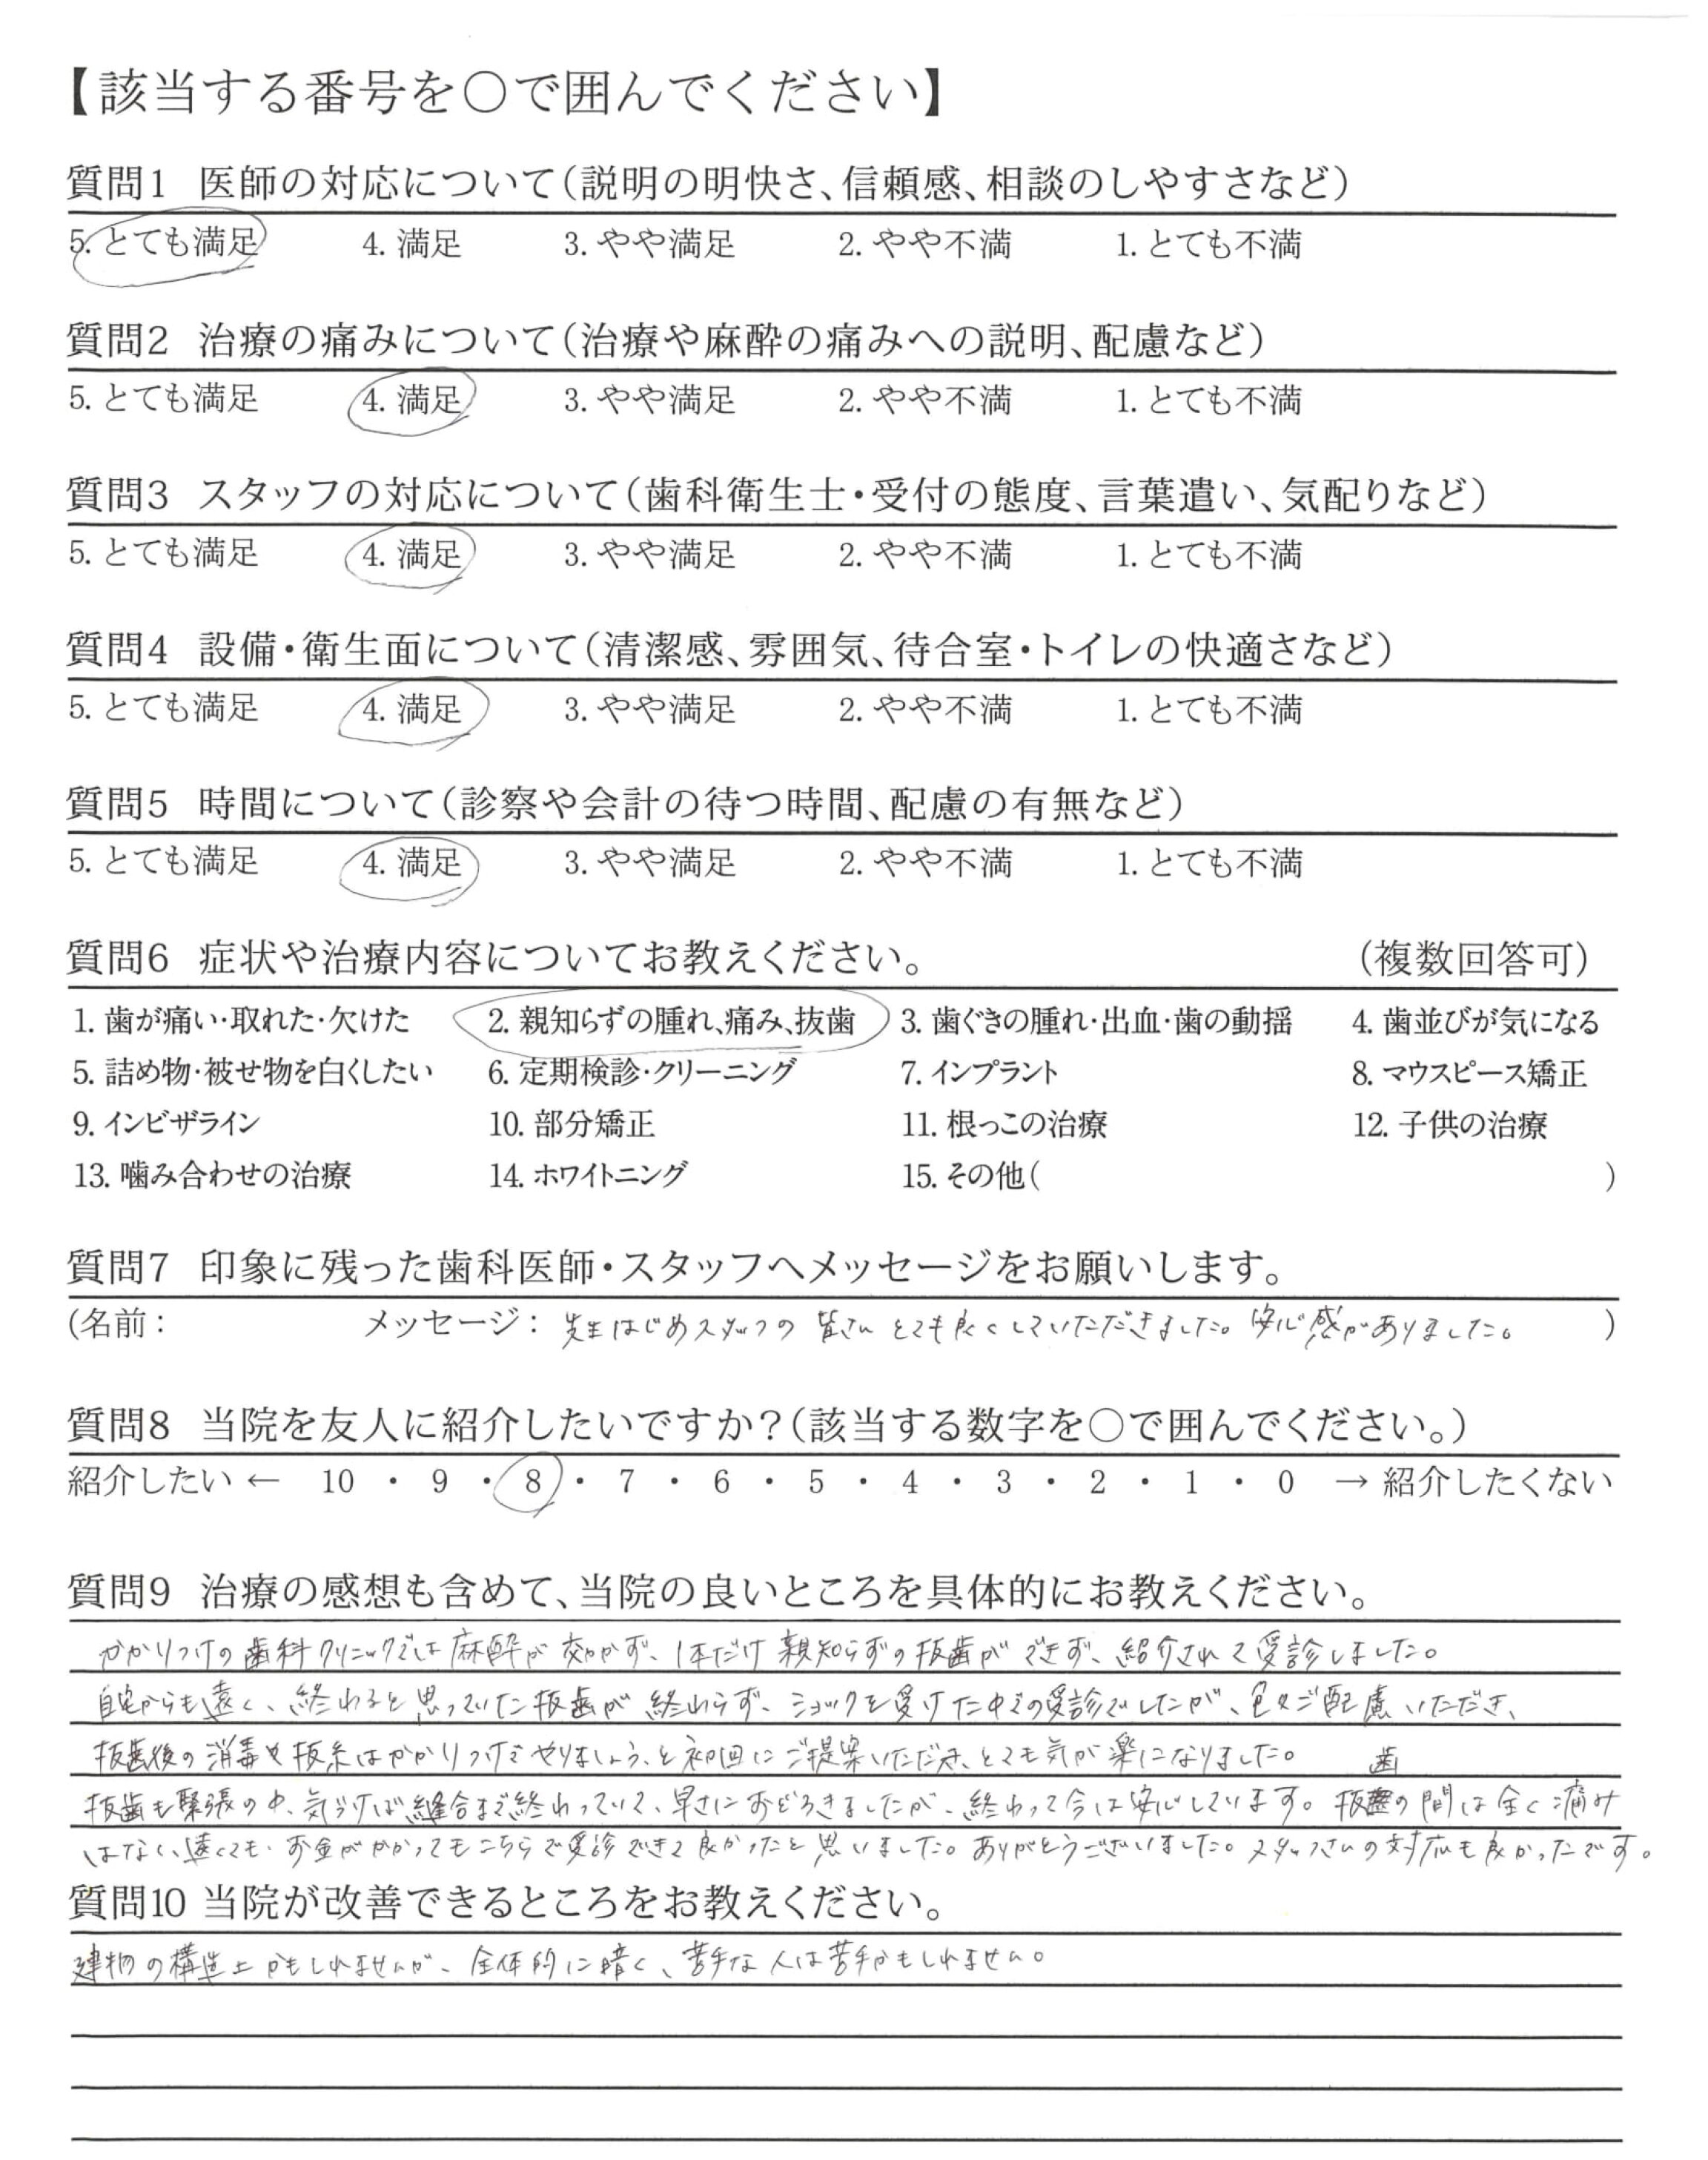 【該当する番号を○で囲んでください】
質問1 医師の対応について(説明の明快さ、信頼感、相談のしやすさなど)
5. とても満足 4. 満足 3. やや満足 2. やや不満 1. とても不満
質問2 治療の痛みについて(治療や麻酔の痛みへの説明、配慮など)
5. とても満足 4. 満足 3. やや満足 2. やや不満 1. とても不満
質問3 スタッフの対応について(歯科衛生士・受付の態度、言葉遣い、気配りなど)
5. とても満足 4. 満足 3. やや満足 2. やや不満 1. とても不満
質問4 設備・衛生面について(清潔感、雰囲気、待合室・トイレの快適さなど)
5. とても満足 4. 満足 3. やや満足 2. やや不満 1. とても不満
質問5 時間について(診察や会計の待つ時間、配慮の有無など)
5. とても満足 4. 満足 3. やや満足 2. やや不満 1. とても不満
質問6 症状や治療内容についてお教えください。 (複数回答可)
1. 歯が痛い・取れた・欠けた 2. 親知らずの腫れ、痛み、抜歯 3. 歯ぐきの腫れ・出血・歯の動揺 4. 歯並びが気になる
5. 詰め物・被せ物を白くしたい 6. 定期検診・クリーニング 7. インプラント 8. マウスピース矯正
9. インビザライン 10. 部分矯正 11. 根っこの治療 12. 子供の治療
13. 噛み合わせの治療 14. ホワイトニング 15. その他( )
質問7 印象に残った歯科医師・スタッフへメッセージをお願いします。
(名前： メッセージ：先生はじめスタッフの皆さんとても良くしていただきました。安心感がありました。 )
質問8 当院を友人に紹介したいですか？(該当する数字を○で囲んでください。)
紹介したい ← 10 ・ 9 ・ 8 ・ 7 ・ 6 ・ 5 ・ 4 ・ 3 ・ 2 ・ 1 ・ 0 → 紹介したくない
質問9 治療の感想も含めて、当院の良いところを具体的にお教えください。
かかりつけの歯科クリニックでは麻酔が効かず、1本だけ親知らずの抜歯ができず、紹介されて受診しました。
自宅からも遠く、終わると思っていた抜歯が終わらず、ショックを受けた中での受診でしたが、色々ご配慮いただき、
抜歯後の消毒や抜糸はかかりつけでやりましょう、と初回にご提案いただき、とても気が楽になりました。
抜歯も緊張の中、気づけば縫合まで終わっていて、早さにおどろきましたが、終わって今は安心しています。抜歯の間は全く痛み
はなく、遠くても、お金がかかってもこちらで受診できて良かったと思いました。ありがとうございました。スタッフさんの対応も良かったです。
質問10 当院が改善できるところをお教えください。
建物の構造上かもしれませんが、全体的に暗く、苦手な人は苦手かもしれません。